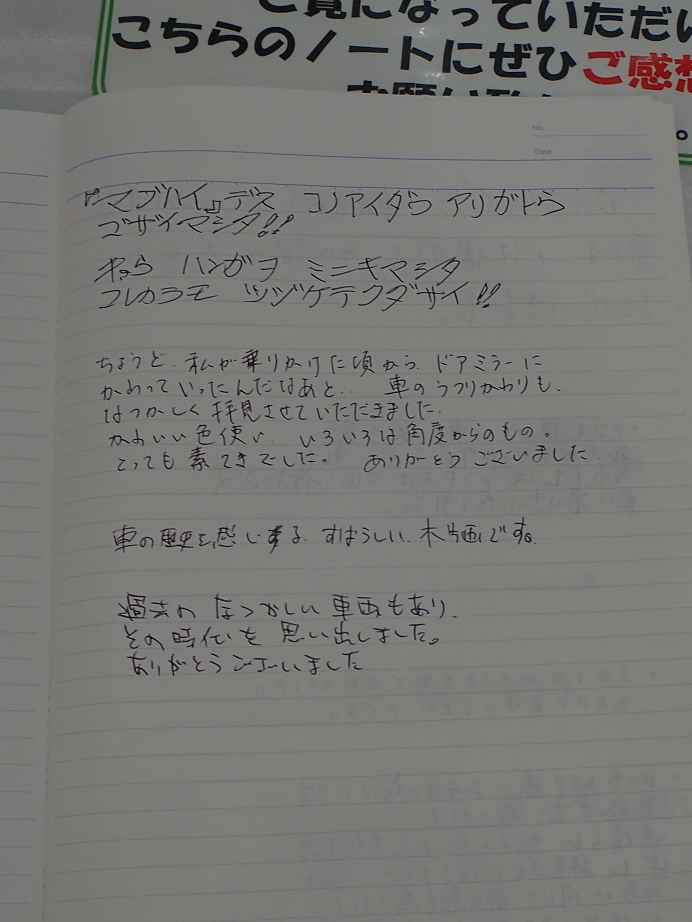 ご覧になっていただい
こちらのノートにぜひご感想
お願い致
No.
Date
『マブハイ』デス コノアイダゥ アリガトゥ
ゴザイマシタ!!
ハンガヲ ミニキマシタ
コレカラモ ツヅケテクダサイ!!
ちょうど、私が乗りかけた頃から ドアミラーに
かわって いったんだなあと.. 車のうつりかわりも、
なつかしく拝見させていただきました。
かわいい色使い、いろいろな角度からのもの。
とっても素てきでした。 ありがとうございました
車の歴史を感じする すばらしい、木版画です。
過去の なつかしい 車両もあり、
その時代を 思い出しました。
ありがとうございました